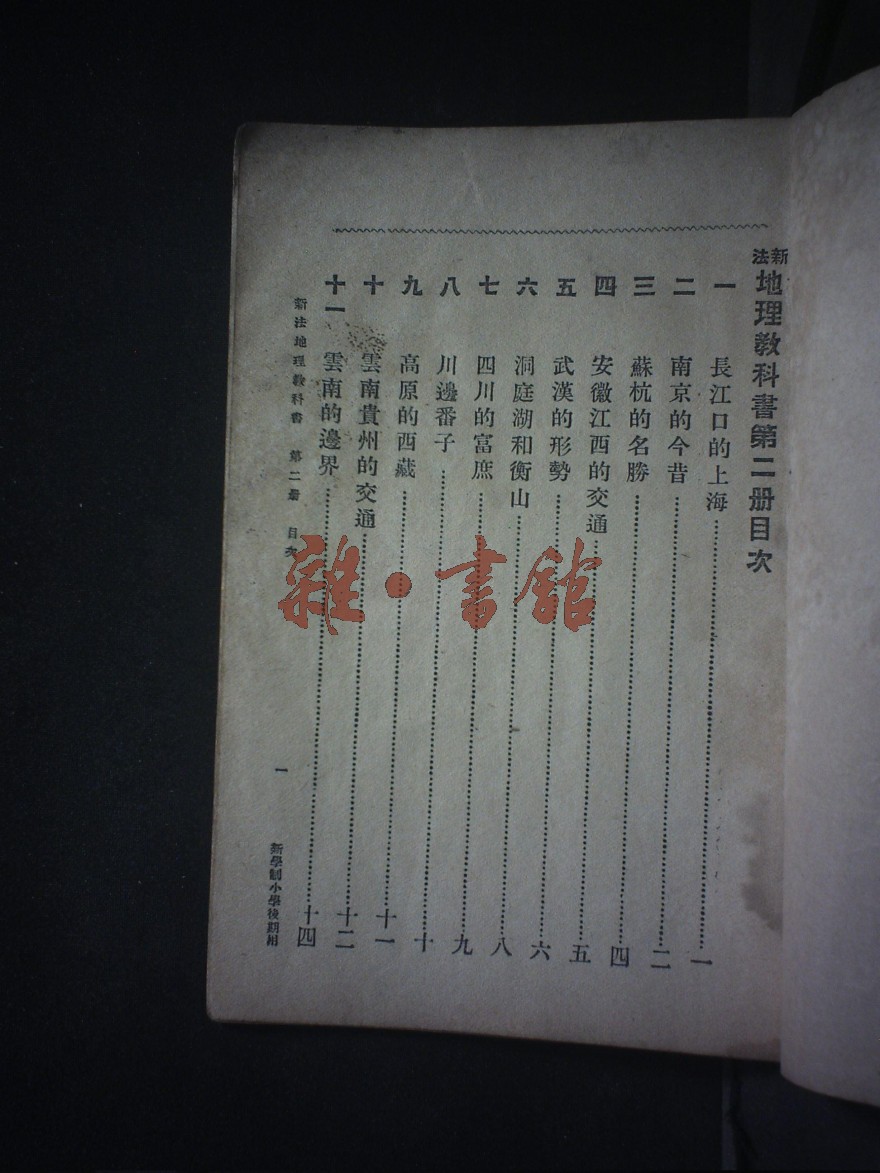 新法地理敎科書第二册目次
一 長江口的上海 一
二 南京的今昔 二
三 蘇杭的名勝 四
四 安徽江西的交通 五
五 武漢的形勢 六
六 洞庭湖和衡山 八
七 四川的富庶 九
八 川邊番子 十
九 高原的西藏 十一
十 雲南貴州的交通 十二
十一 雲南的邊界 十四
新法地理敎科書 第二册 目次 一 新學制小學後期用
雜·書館